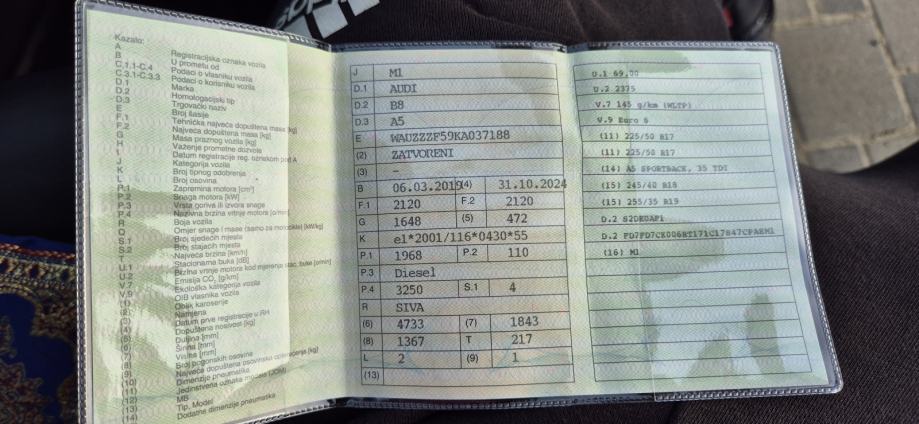 Kazalo:
A Registracijska oznaka vozila
B U prometu od
C.1.1-C.4 Podaci o vlasniku vozila
C.3.1-C.3.3 Podaci o korisniku vozila
D.1 Marka
D.2 Homologacijski tip
D.3 Trgovački naziv
E Broj šasije
F.1 Tehnička najveća dopuštena masa [kg]
F.2 Najveća dopuštena masa [kg]
G Masa praznog vozila [kg]
H Važenje prometne dozvole
I Datum registracije reg. oznakom pod A
J Kategorija vozila
K Broj tipnog odobrenja
L Broj osovina
P.1 Zapremina motora [cm³]
P.2 Snaga motora [kW]
P.3 Vrsta goriva ili izvora snage
P.4 Nazivna brzina vrtnje motora
R Boja vozila
Q Omjer snage i mase (samo za motocikle) [kW/kg]
S.1 Broj sjedećih mjesta
S.2 Broj stajaćih mjesta
T Najveća brzina [km/h]
U.1 Stacionarna buka [dB]
U.2 Brzina vrtnje motora kod mjerenja stac. buke [o/min]
V.7 Emisija CO₂ [g/km]
V.9 Ekološka kategorija vozila
OIB vlasnika vozila
(2) Oblik karoserije
(3) Namjena
(4) Datum prve registracije u RH
(5) Dopuštena nosivost [kg]
(6) Duljina [mm]
(7) Širina [mm]
(8) Visina [mm]
(9) Broj pogonskih osovina
(10) Najveće dopuštena osovinsko opterećenje [kg]
(11) Dimenzije pneumatika
(12) Jedinstvena oznaka modela
(13) MB
(14) Tip, Model
Dodatne dimenzije pneumatika
J M1
D.1 AUDI
D.2 B8
D.3 A5
E WAUZZZF59KA037188
(2) ZATVORENI
(3) -
B 06.03.2019 (4) 31.10.2024
F.1 2120 F.2 2120
G 1648 (5) 472
K e1*2001/116*0430*55
P.1 1968 P.2 110
P.3 Diesel
P.4 3250 S.1 4
R SIVA
(6) 4733 (7) 1843
(8) 1367 T 217
L 2 (9) 1
(13)
U.1 69,00
U.2 2375
V.7 145 g/km (WLTP)
V.9 Euro 6
(11) 225/50 R17
(11) 225/50 R17
(14) A5 SPORTBACK, 35 TDI
(15) 245/40 R18
(15) 255/35 R19
D.2 S2DE0AP1
(16) M1